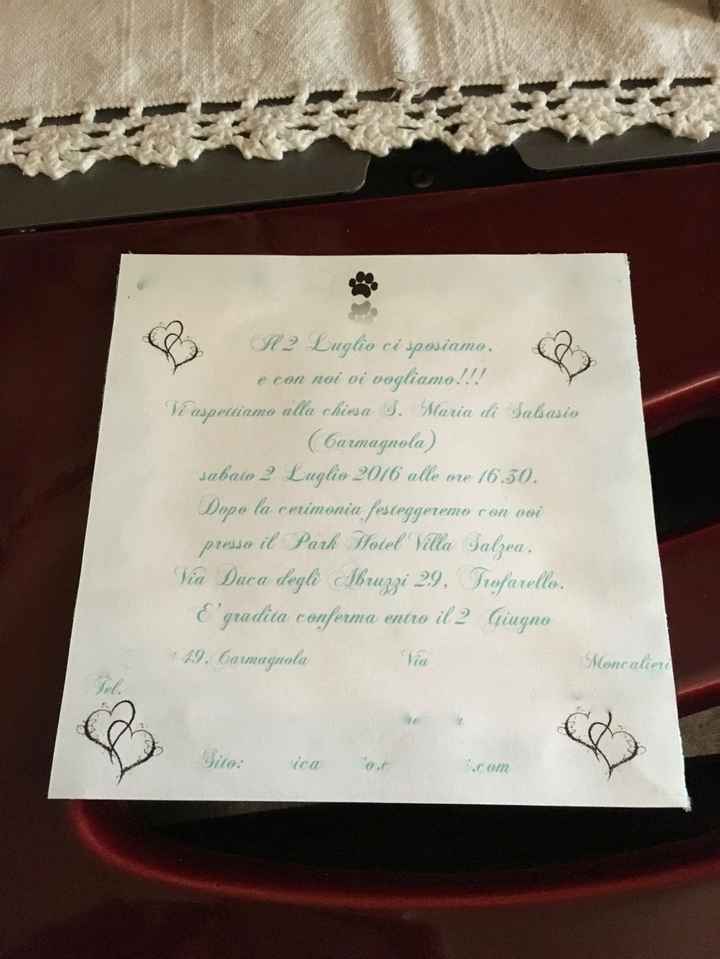 Il 2 Luglio ci sposiamo,
e con noi vi vogliamo!!!
Vi aspettiamo alla chiesa S. Maria di Salsasio
(Carmagnola)
sabato 2 Luglio 2016 alle ore 16.30.
Dopo la cerimonia festeggeremo con voi
presso il Park Hotel Villa Salzea,
Via Duca degli Abruzzi 29, Trofarello.
E' gradita conferma entro il 2 Giugno
49, Carmagnola Via Moncalieri
Tel.
Sito: ica .com